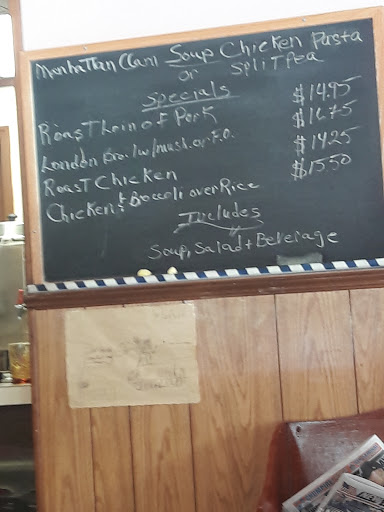 Manhattan Clam Soup Chicken Pasta
or Split Pea
Specials
Roast Loin of Pork $14.95
London Broil w/mush. or F.O. $16.75
Roast Chicken $14.25
Chicken & Broccoli over Rice $15.50
Includes
Soup, Salad + Beverage